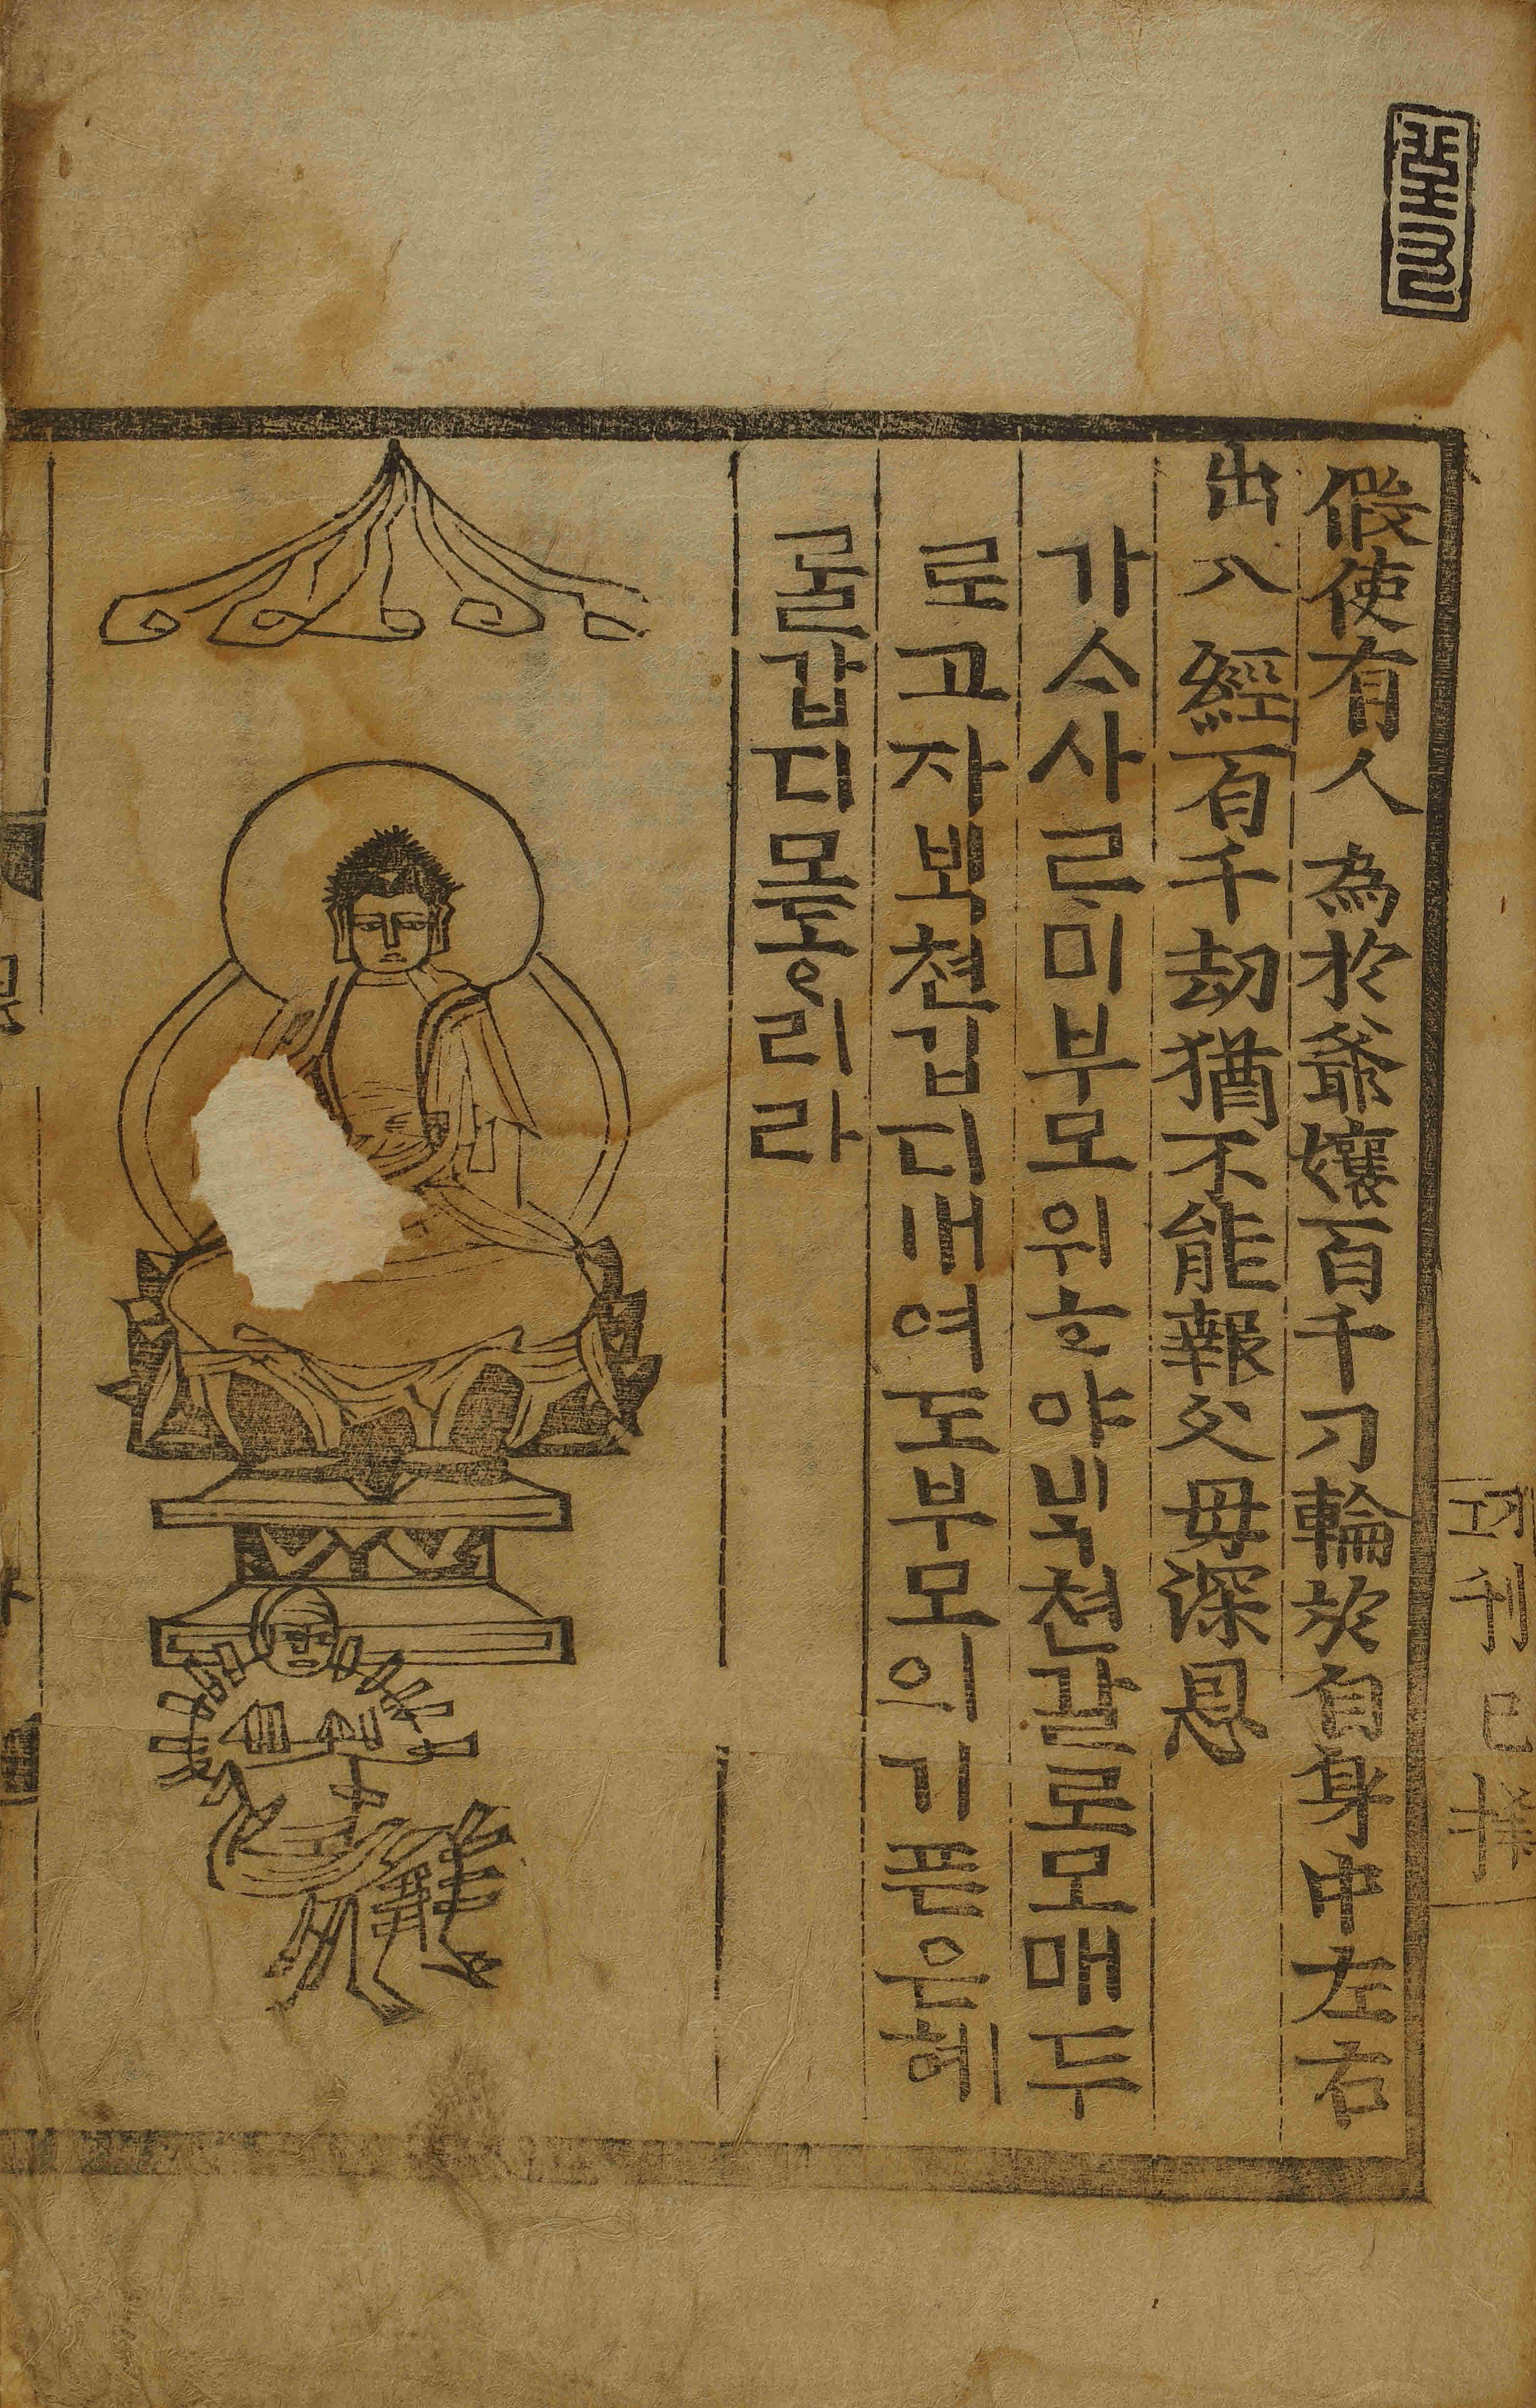 假使有人為於爺孃百千刀輪於自身中左右
出入經百千劫猶不能報父母深恩
가ᄉᆞ사ᄅᆞ미부모위ᄒᆞ야ᄇᆡᆨ쳔갈로모매두
로고자ᄇᆡᆨ쳔겁디내여도부모의기픈은혜
롤갑디몯ᄒᆞ리라